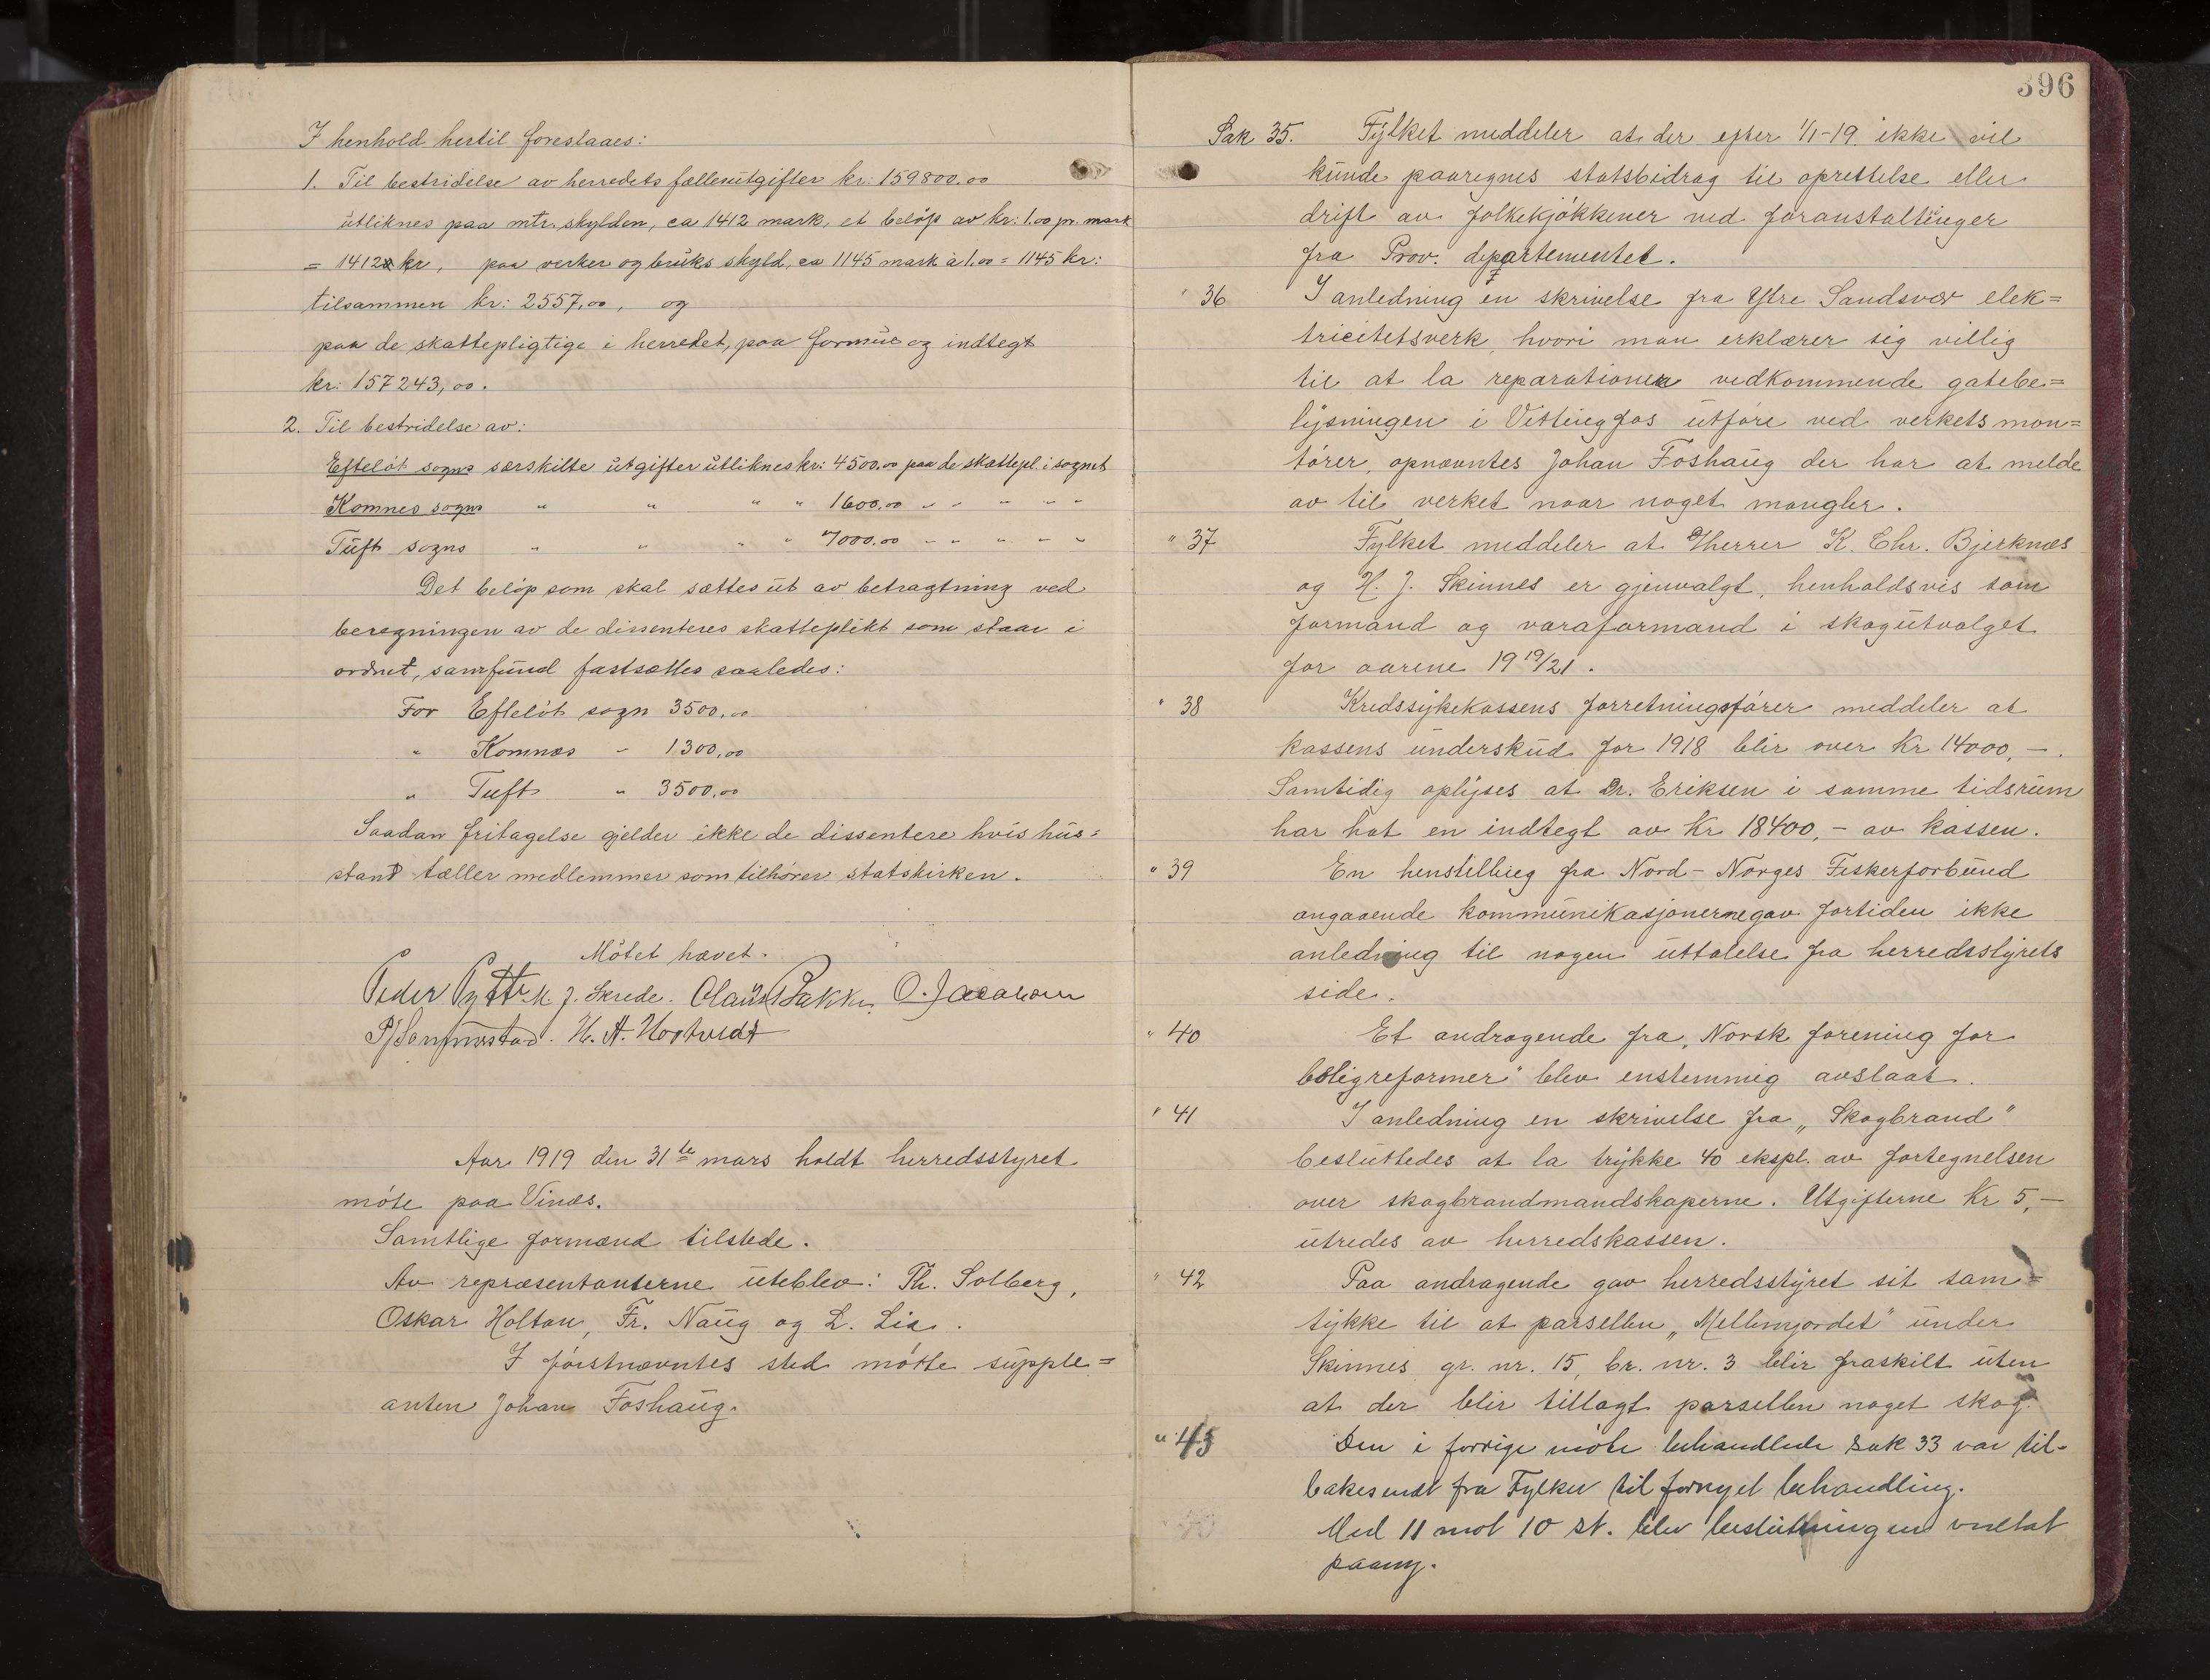 I henhold hertil foreslaaes:
1. Til bestridelse av herredets fællesutgifter kr: 159800.00
utliknes paa mtr. skylden, ca 1412 mark, et beløp av kr: 1.00 pr. mark
= 1412 kr, paa verker og bruks skyld, ca 1145 mark à 1.00 = 1145 kr:
tilsammen kr: 2557,00, og
paa de skattepligtige i herredet, paa formue og indtegt
kr: 157243,00.
2. Til bestridelse av:
Efteløt sogns særskilte utgifter utliknes kr: 4500.00 paa de skattepl. i sognet
Komnes sogns " " " " 1600.00 " " " " "
Tuft sogns " " " " 7000.00 " " " " "
Det beløp som skal sættes ut av betragtning ved
beregningen av de dissenteres skatteplikt som staar i
ordnet, samfund fastsættes saaledes:
For Efteløt sogn 3500,00
" Komnæs " 1300,00
" Tuft " 3500,00
Saadan fritagelse gjelder ikke de dissentere hvis hus=
stand tæller medlemmer som tilhører statskirken.
Møtet hævet.
Peder M. J. Skrede. Claus Bakke. O. Jacobsen
H. A. Hostvedt
Aar 1919 den 31te mars holdt herredsstyret
møte paa Vinæs.
Samtlige formænd tilstede.
Av repræsentanterne uteblev: Th. Solberg,
Oskar Holtan, Fr. Naug og L. Lia.
I førstnævntes sted møtte supple=
anten Johan Foshaug.
396
Sak 35. Fylket meddeler at der efter 1/1-19 ikke vil
kunde paaregnes statsbidrag til oprettelse eller
drift av folkekjøkkener ved foranstaltinger
fra Prov. departementet.
" 36 I anledning en skrivelse fra Ytre Sandsvær elek=
tricitetsverk, hvori man erklærer sig villig
til at la reparationer vedkommende gatebe=
lysningen i Vittingfos utføre ved verkets mon=
tører, opnævntes Johan Foshaug der har at melde
av til verket naar noget mangler.
" 37 Fylket meddeler at Herrer K. Chr. Bjerknæs
og H. J. Skinnes er gjenvalgt, henholdsvis som
formand og varaformand i skogutvalget
for aarene 19 19/21.
" 38 Kredssykekassens forretningsfører meddeler at
kassens underskud for 1918 blir over Kr 14000,-.
Samtidig oplyses at Dr. Eriksen i samme tidsrum
har hat en indtegt av Kr 18400,- av kassen.
" 39 En henstilling fra Nord-Norges Fiskerforbund
angaaende kommunikasjonerne gav fortiden ikke
anledning til nogen uttalelse fra herredsstyrets
side.
" 40 Et andragende fra „Norsk forening for
boligreformer" blev enstemmig avslaat.
" 41 I anledning en skrivelse fra „Skogbrand"
besluttedes at la trykke 40 ekspl. av fortegnelsen
over skogbrandmandskaperne. Utgifterne Kr 5,-
utredes av herredskassen.
" 42 Paa andragende gav herredsstyret sit sam=
tykke til at parsellen „Mellemjordet" under
Skinnes gr. nr. 15, br. nr. 3 blir fraskilt uten
at der blir tillagt parsellen noget skog.
" 43 Den i forrige møte behandlede sak 33 var til-
bakesendt fra Fylket til fornyet behandling.
Med 11 mot 10 st. blev beslutningen vedtat
paany.